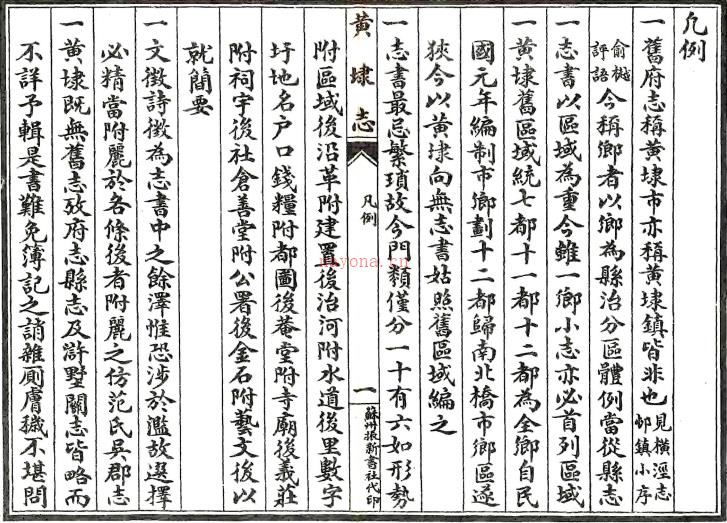 凡例
一舊府志稱黃埭市亦稱黃埭鎮皆非也見橫涇志邨鎮小序
俞樾評語今稱鄉者以鄉為縣治分區體例當從縣志
一志書以區域為重今雖一鄉小志亦必首列區域
一黃埭舊區域統七都十一都十二都為全鄉自民
國元年編制市鄉劃十二都歸南北橋市鄉區遂
狹今以黃埭向無志書姑照舊區域編之
一志書最忌繁瑣故今門類僅分一十有六如形勢
黃埭志
凡例
一
蘇州振新書社代印
附區域後沿革附建置後治河附水道後里數字
圩地名户口錢糧附都圖後菴堂附寺廟後義莊
附祠宇後社倉善堂附公署後金石附藝文後以
就簡要
一文徵詩徵為志書中之餘澤惟恐涉於濫故選擇
必精當附麗於各條後者附麗之仿范氏吳郡志
一黃埭既無舊志攷府志縣志及滸墅關志皆略而
不詳予輯是書難免簿記之誚雜廁膚穢不堪問
nayona.cn